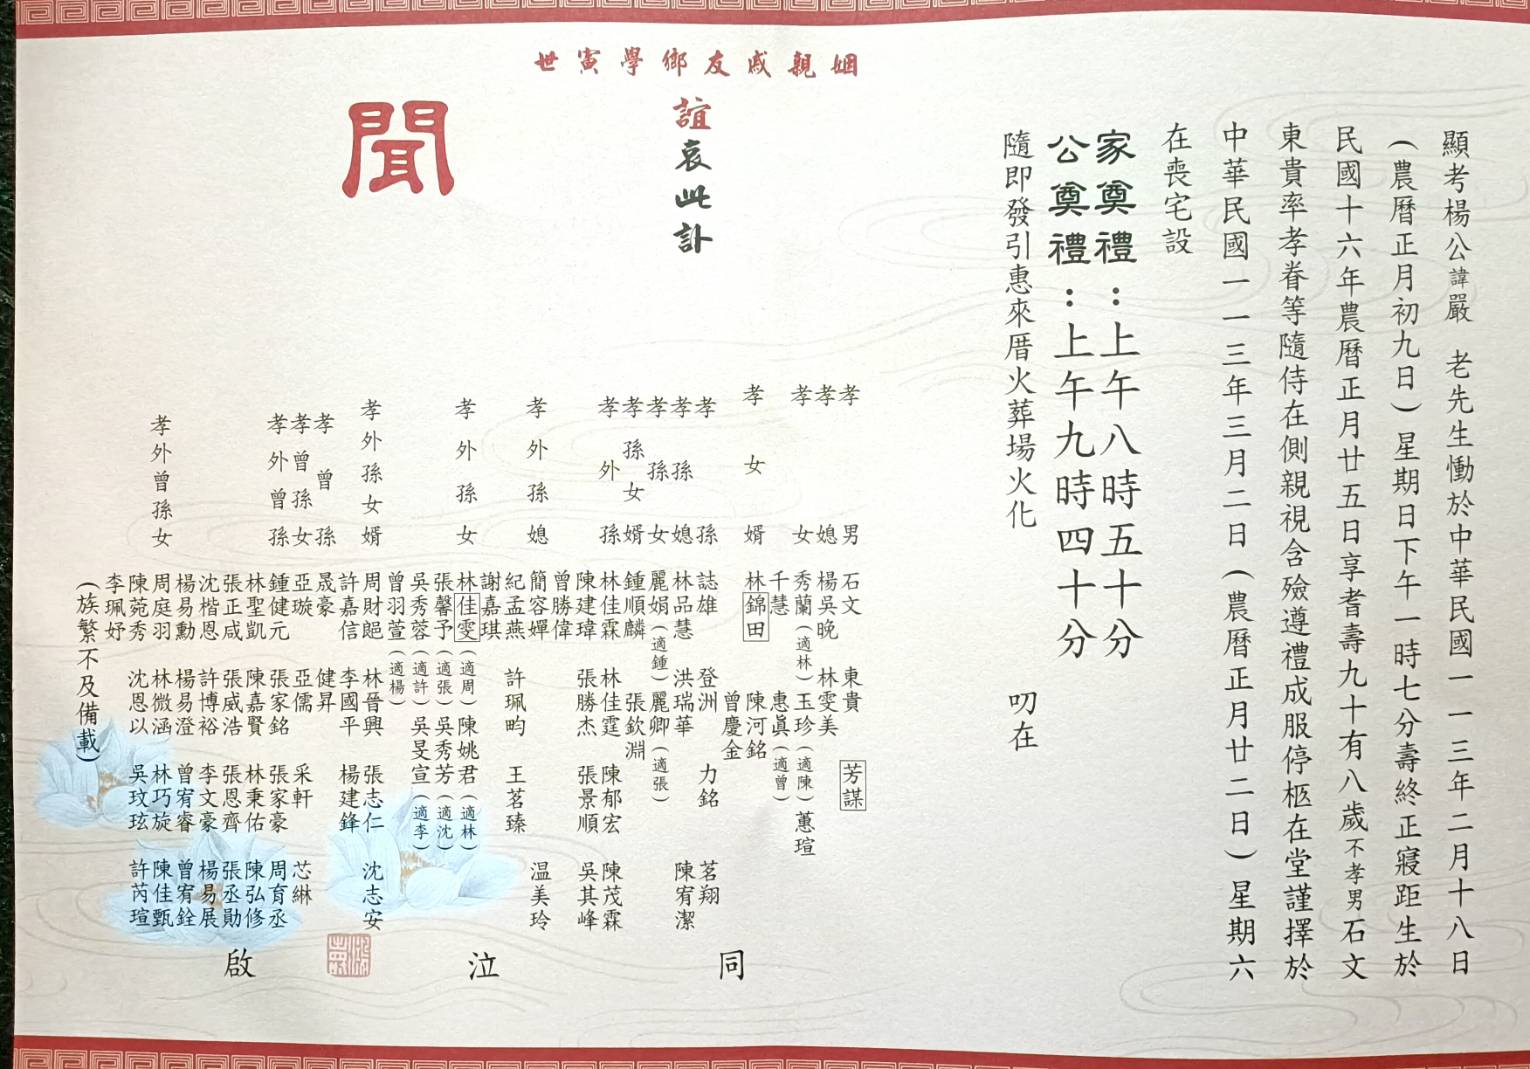 顯考楊公諱嚴 老先生慟於中華民國一一三年二月十八日
(農曆正月初九日)星期日下午一時七分壽終正寢距生於
民國十六年農曆正月廿五日享耆壽九十有八歲不孝男石文
東貴率孝眷等隨侍在側親視含殮遵禮成服停柩在堂謹擇於
中華民國一一三年三月二日(農曆正月廿二日)星期六
在喪宅設
家奠禮:上午八時五十分
公奠禮:上午九時四十分
隨即發引惠來厝火葬場火化 叨在
姻親戚友鄉學寅世
誼哀此訃
聞
孝男 石文 東貴 芳謀
孝媳 楊吳晚 林雯美
孝女 秀蘭(適林)玉珍(適陳)蕙瑄
千慧 惠眞(適曾)
孝女婿 林錦田 陳河銘
曾慶金
孝孫 誌雄 登洲 力銘 茗翔
孝孫媳 林品慧 洪瑞華 陳宥潔
孝孫女 麗娟(適鍾)麗卿(適張)
孝孫女婿 鍾順麟 張欽淵
孝外孫 林佳霖 林佳霆 陳郁宏 陳茂霖
陳建瑋 張勝杰 張景順 吳其峰
曾勝偉
孝外孫媳 簡容嬋 温美玲
紀孟燕 許珮昀 王茗臻
謝嘉琪
孝外孫女 林佳雯(適周)陳姚君(適林)
張馨予(適張)吳秀芳(適沈)
吳秀蓉(適許)吳旻宣(適李)
曾羽萱(適楊)
孝外孫女婿 周財 林晉興 張志仁 沈志安
許嘉信 李國平 楊建鋒
孝曾孫 晟豪 健昇
孝曾孫女 亞璇 亞儒 采軒 芯綝
孝外曾孫 鍾健元 張家銘 張家豪 周育丞
林聖凱 陳嘉賢 林秉佑 陳弘修
張正宬 張威浩 張恩齊 張丞勛
沈楷恩 許博裕 李文豪 楊易展
楊易勳 楊易澄 曾宥睿 曾宥銓
孝外曾孫女 周庭羽 林微涵 林巧旋 陳佳甄
陳菀秀 沈恩以 吳玟玹 許芮瑄
李珮妤
(族繁不及備載)
同 泣 啟